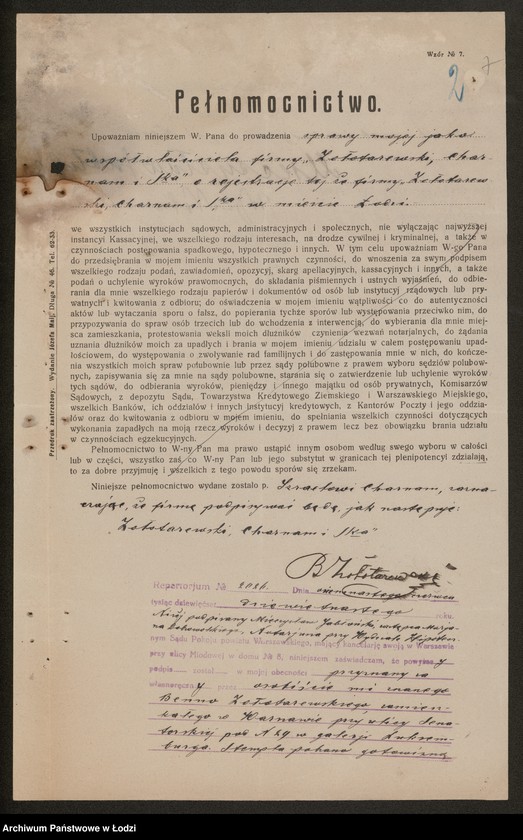 Wzór № 7.
2
7
Pełnomocnictwo.
Upoważniam niniejszem W. Pana do prowadzenia sprawy mojej jako
współwłaściciela firmy „Zołotarewski, Char-
nam i Ska" o rejestrację tej że firmy „Zołotarew
ski, Charnam i Ska" w mieście Łodzi.
we wszystkich instytucjach sądowych, administracyjnych i społecznych, nie wyłączając najwyższej
instancyi Kassacyjnej, we wszelkiego rodzaju interesach, na drodze cywilnej i kryminalnej, a także w
czynnościach postępowania spadkowego, hypotecznego i innych. W tym celu upoważniam W-go Pana
do przedsiębrania w mojem imieniu wszystkich prawnych czynności, do wnoszenia za swym podpisem
wszelkiego rodzaju podań, zawiadomień, opozycyj, skarg apelacyjnych, kassacyjnych i innych, a także
podań o uchylenie wyroków prawomocnych, do składania piśmiennych i ustnych wyjaśnień, do odbie-
rania dla mnie wszelkiego rodzaju papierów i dokumentów od osób lub instytucyj rządowych lub pry-
watnych i kwitowania z odbioru; do oświadczenia w mojem imieniu wątpliwości co do autentyczności
aktów lub wytaczania sporu o fałsz, do popierania tychże sporów lub występowania przeciwko nim, do
przypozywania do spraw osób trzecich lub do wchodzenia z interwencją; do wybierania dla mnie miej-
sca zamieszkania, protestowania weksli moich dłużników czynienia wezwań notarjalnych, do żądania
uznania dłużników moich za upadłych i brania w mojem imieniu udziału w całem postępowaniu upad-
łościowem, do występowania o zwoływanie rad familijnych i do zastępowania mnie w nich, do kończe-
nia wszystkich moich spraw polubownie lub przez sądy polubowne z prawem wyboru sędziów polubow-
nych, zapisywania się za mnie na sądy polubowne, starania się o zatwierdzenie lub uchylenie wyroków
tych sądów, do odbierania wyroków, pieniędzy i innego majątku od osób prywatnych, Komisarzów
Sądowych, z depozytu Sądu, Towarzystwa Kredytowego Ziemskiego i Warszawskiego Miejskiego,
wszelkich Banków, ich oddziałów i innych instytucyj kredytowych, z Kantorów Poczty i jego oddzia-
łów oraz do kwitowania z odbioru w mojem imieniu, do spełniania wszelkich czynności dotyczących
wykonania zapadłych na moją rzecz wyroków i decyzyj z prawem lecz bez obowiązku brania udziału
w czynnościach egzekucyjnych.
Pełnomocnictwo to W-ny Pan ma prawo ustąpić innym osobom według swego wyboru w całości
lub w części, wszystko zaś co W-ny Pan lub jego substytut w granicach tej plenipotencyi zdziałają,
to za dobre przyjmuję i wszelkich z tego powodu sporów się zrzekam.
Niniejsze pełnomocnictwo wydane zostało p. Izraelowi Charnam, zazna-
czając, że firmę podpisywać będą, jak następuje:
„Zołotarewski, Charnam i Ska"
B Zołotarewski
Repertorjum № 2026. Dnia osiemnastego czerwca
tysiąc dziewięćset dziewiętnastego roku.
Ja, niżej podpisany Mieczysław Jabłoński, zastępca Marja-
na Notarjusza przy Wydziale Hipotecz-
nym Sądu Pokoju powiatu Warszawskiego, mający kancelarję swoją w Warszawie
przy ulicy Miodowej w domu № 8, niniejszem zaświadczam, że powyższy
podpis został w mojej obecności przyznany za
własnoręczny przez osobiście mi znanego
Benno Zołotarewskiego zamiesz-
kałego w Warszawie przy ulicy Sena-
torskiej pod № 29 w galerji Luksem-
burga. Stempla pobrano gotowizną
Przedruk zastrzeżony. Wydanie Józefa Maja Długa № 46. Tel. 62-53.
Archiwum Państwowe w Łodzi